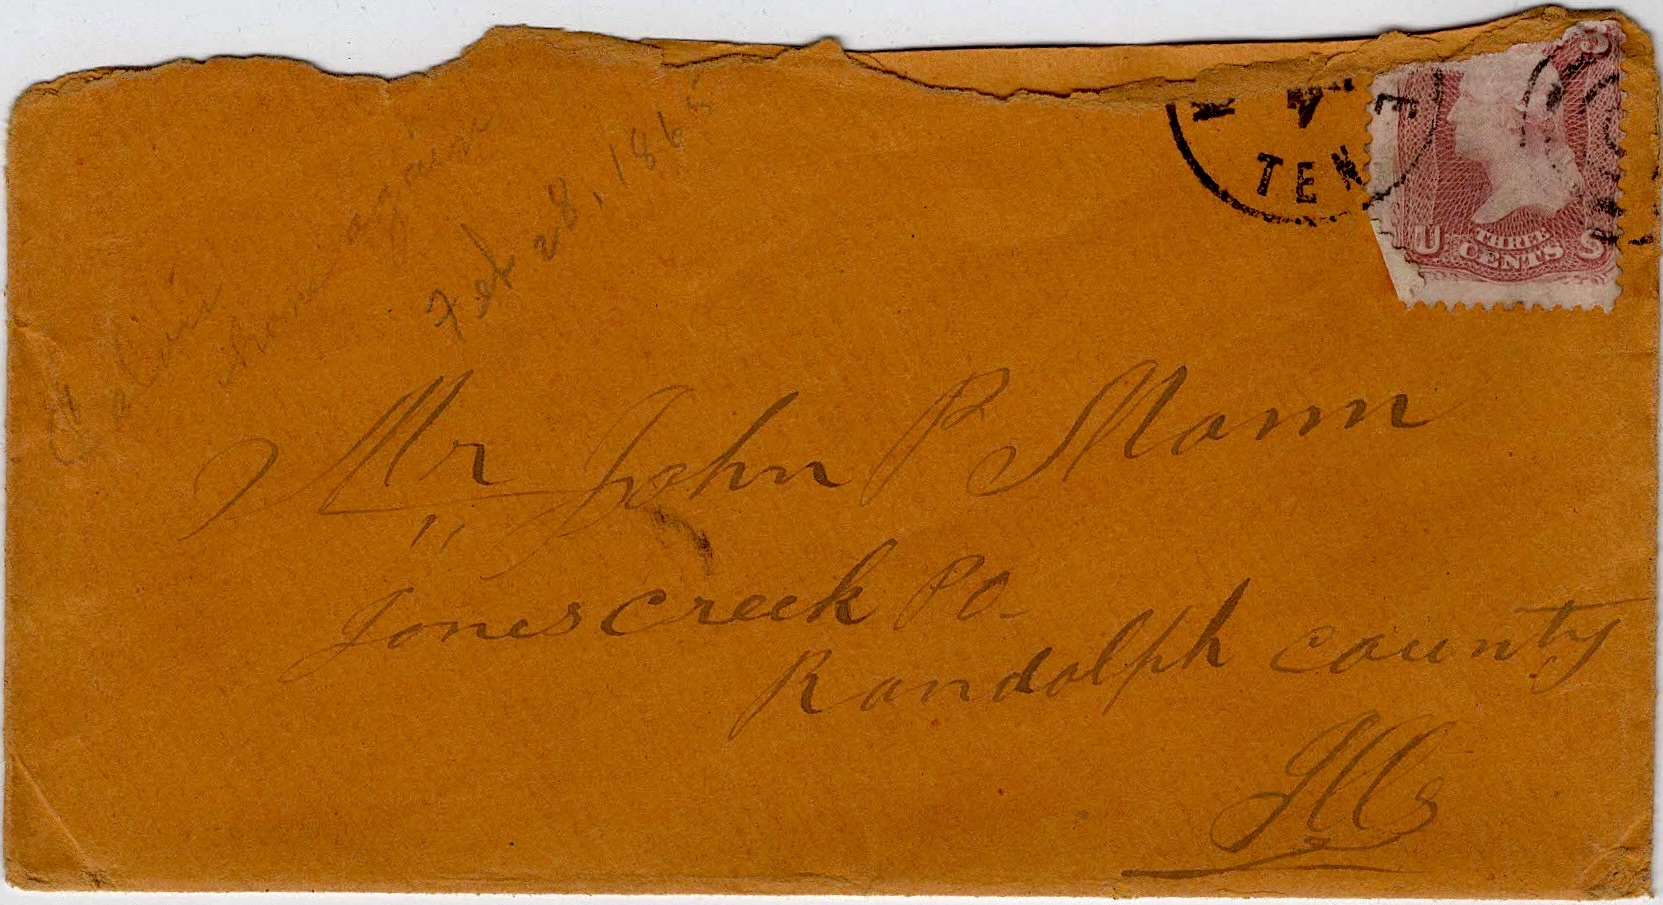 Calvin
home again
Feb 28, 1865
TEN
U THREE CENTS S
Mr John P Mann
" Jones Creek PO-
Randolph County
Ills